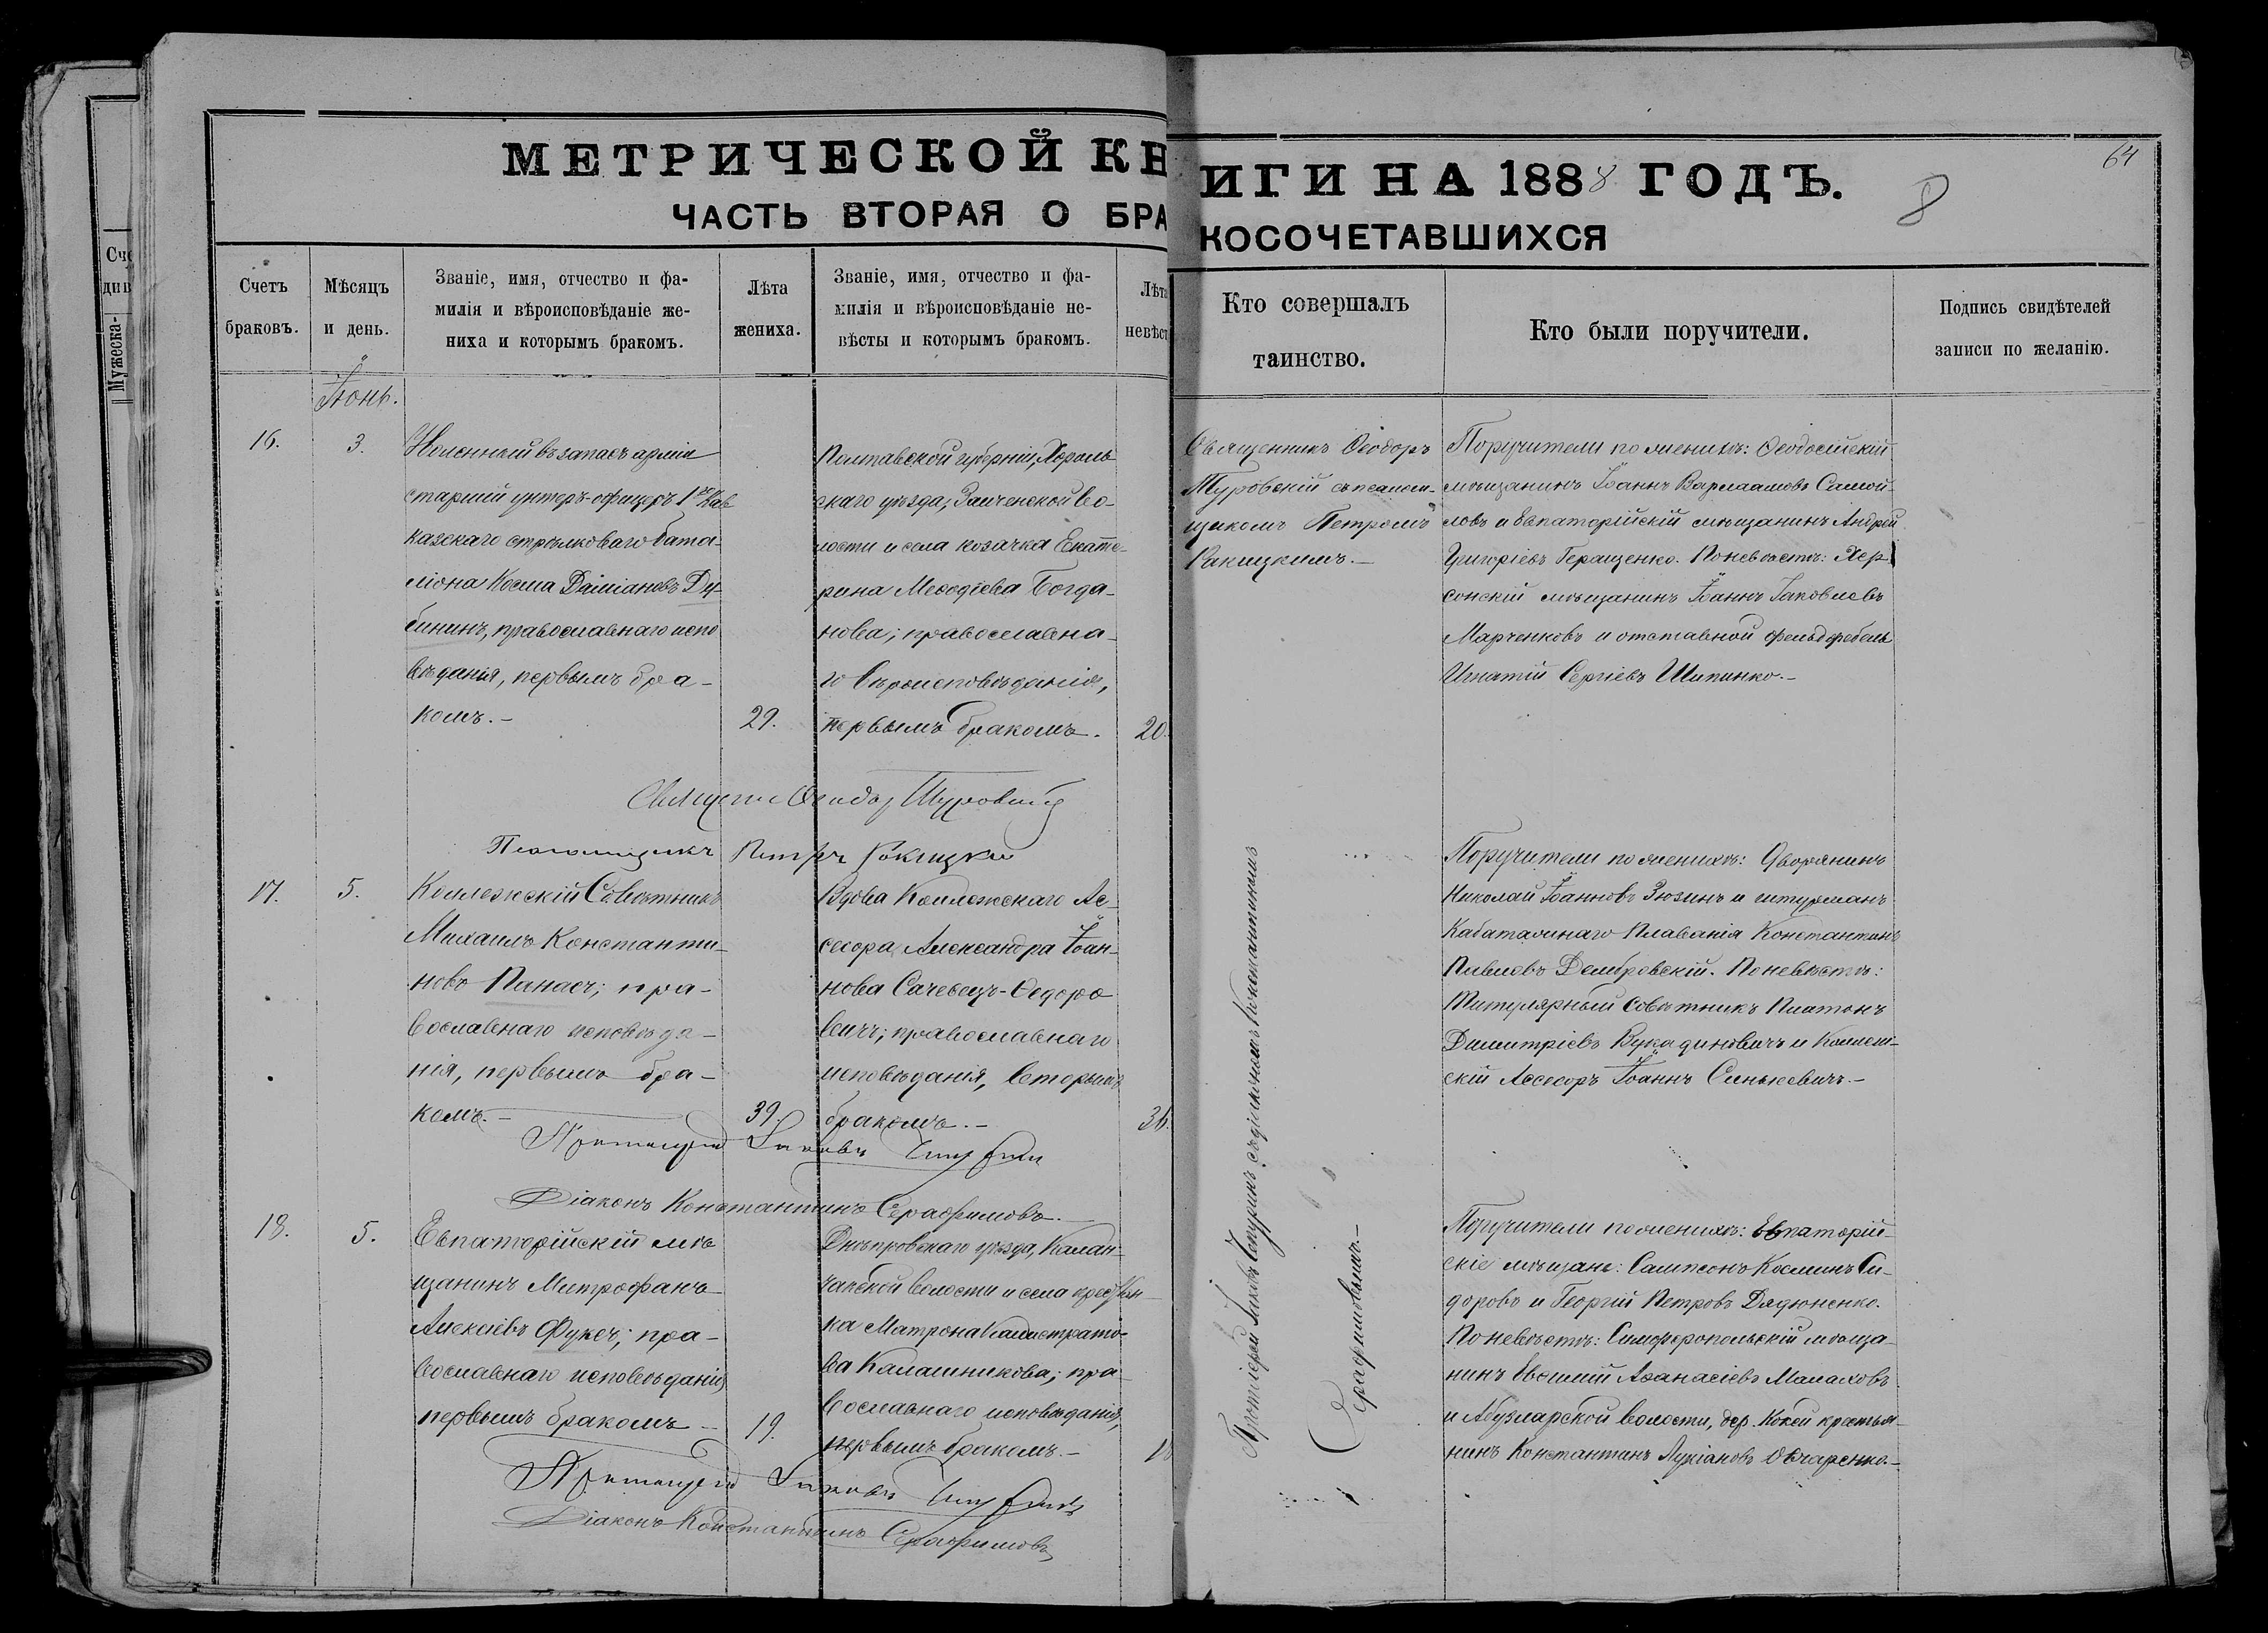 МЕТРИЧЕСКОЙ КНИГИ НА 1888 ГОДЪ.
64
8
ЧАСТЬ ВТОРАЯ О БРАКОСОЧЕТАВШИХСЯ
Счетъ
браковъ.
Мѣсяцъ
и день.
Званіе, имя, отчество и фа-
милія и вѣроисповѣданіе же-
ниха и которымъ бракомъ.
Лѣта
жениха.
Званіе, имя, отчество и фа-
милія и вѣроисповѣданіе не-
вѣсты и которымъ бракомъ.
Лѣта
невѣст
Кто совершалъ
таинство.
Кто были поручители.
Подпись свидѣтелей
записи по желанію.
Мужеска-
Іюнь.
16.
3.
Уволенный въ запасъ арміи
старшій унтеръ-офицеръ 1го Кав
казскаго стрѣлковаго бата-
ліона Косма Даміановъ Ду-
бининъ, православнаго испо
вѣданія, первымъ бра-
комъ.-
29.
Полтавской губерніи, Хороль
скаго уѣзда, Заиченской во-
лости и села козачка Екате-
рина Меѳодіева Богда-
нова; православна-
го вѣроисповѣданія,
первымъ бракомъ.
20.
Священникъ Ѳеодоръ
Туровскій съ псаломи-
щикомъ Петромъ
Ракицкимъ.-
Поручители по женихѣ: Ѳеодосійскій
мѣщанинъ Іоаннъ Варлаамовъ Самой-
ловъ и Евпаторійскій мѣщанинъ Андрей
Григоріевъ Геращенко. По невѣстѣ: Хер-
сонскій мѣщанинъ Іоаннъ Іаковлевъ
Марченковъ и отставной фельдфебель
Игнатій Сергіевъ Шипинко.-
Священникъ Ѳеодоръ Туровскій
Псаломщикъ Петръ Ракицкій
17.
5.
Коллежскій Совѣтникъ
Михаилъ Константи-
новъ Панасъ; пра-
вославнаго исповѣда-
нія, первымъ бра-
комъ.-
39.
Вдова Коллежскаго Ас-
сесора, Александра Іоан-
нова Сачевецъ-Ѳедоро
вичъ; православнаго
исповѣданія, вторымъ
бракомъ.-
36.
Поручители по женихѣ: Дворянинъ
Николай Іоанновъ Зюзинъ и штурманъ
Каботажнаго плаванія Константинъ
Павловъ Домбровскій. По невѣстѣ:
Титулярный Совѣтникъ Платонъ
Димитріевъ Вукадиновичъ и Коллеж-
скій Ассесоръ Іоаннъ Синькевичъ.-
Протоіерей Іаковъ Чепуринъ
Діаконъ Константинъ Серафимовъ.
Протоіерей Іаковъ Чепуринъ съ діакономъ Константиномъ
Серафимовымъ.-
18.
5.
Евпаторійскій мѣ
щанинъ Митрофанъ
Алексіевъ Фуксъ; пра-
вославнаго исповѣданія
первымъ бракомъ
19.
Днѣпровскаго уѣзда, Калан-
чакской волости и села крестьян-
ка Матрона Каллистрато-
ва Калашникова; пра-
вославнаго исповѣданія,
первымъ бракомъ.-
Поручители по женихѣ: Евпаторій-
скіе мѣщане: Сампсонъ Косминъ Си-
доровъ и Георгій Петровъ Дядюненко.
По невѣстѣ: Симферопольскій мѣща-
нинъ Евсевій Аѳанасіевъ Малаховъ
и Абузларской волости, дер. Кокей крестья-
нинъ Константинъ Лукіановъ Овчаренко.-
Протоіерей Іаковъ Чепуринъ
Діаконъ Константинъ Серафимовъ